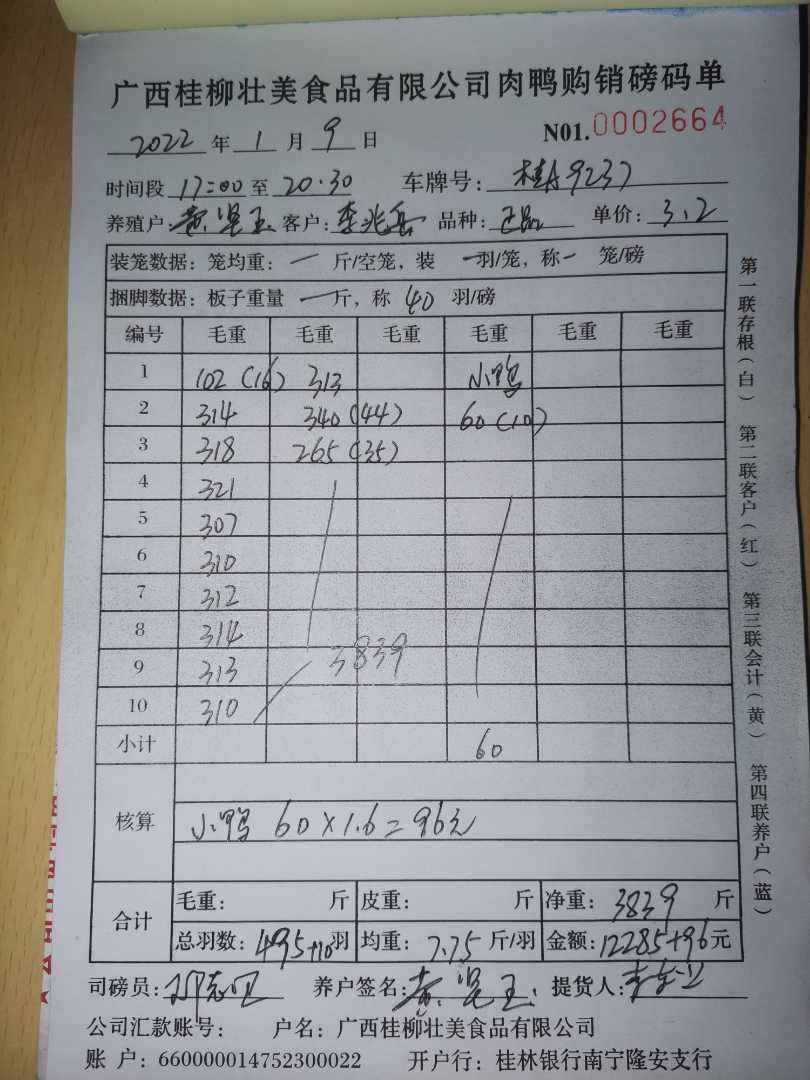 广西桂柳壮美食品有限公司肉鸭购销磅码单
2022 年 1 月 9 日 N01.0002664
时间段 17:00 至 20:30 车牌号: 桂A9237
养殖户: 黄坚玉 客户: 李兆 品种: 正品 单价: 3.2
装笼数据: 笼均重: 一 斤/空笼, 装 一 羽/笼, 称 一 笼/磅
捆脚数据: 板子重量 一 斤, 称 40 羽/磅
编号 毛重 毛重 毛重 毛重 毛重 毛重
1 102 (16) 313 小鸭
2 314 340 (44) 60 (10)
3 318 265 (35)
4 321
5 307
6 310
7 312
8 314
9 313 3839
10 310
小计 60
核算
小鸭 60×1.6=96元
合计 毛重: 斤 皮重: 斤 净重: 3839 斤
总羽数: 495+10 羽 均重: 7.75 斤/羽 金额: 12285+96 元
司磅员: 养户签名: 黄坚玉 提货人: 李
公司汇款账号: 户名: 广西桂柳壮美食品有限公司
账 户: 660000014752300022 开户行: 桂林银行南宁隆安支行
第一联存根(白) 第二联客户(红) 第三联会计(黄) 第四联养户(蓝)